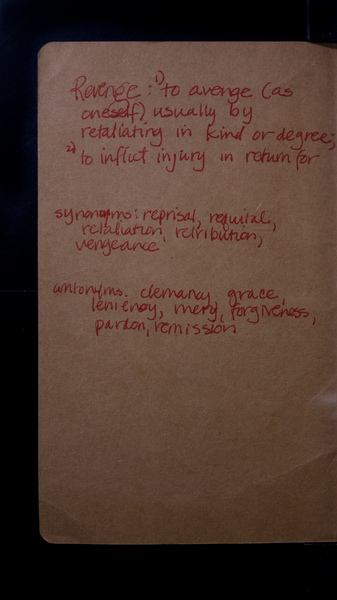 Revenge: 1) to avenge (as
oneself) usually by
retaliating in kind or degree;
2) to inflict injury in return for
synonyms: reprisal, requital,
retaliation, retribution,
vengeance
antonyms: clemancy, grace,
leniency, mercy, forgiveness,
pardon, remission